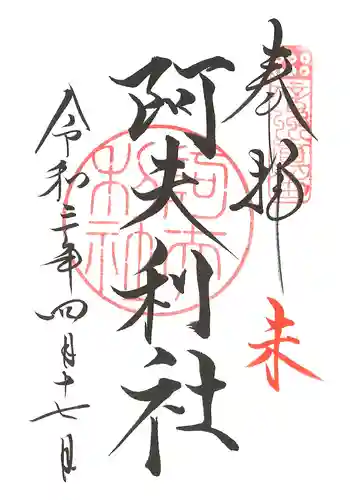 奉拝
未
阿夫利社
令和三年四月十七日